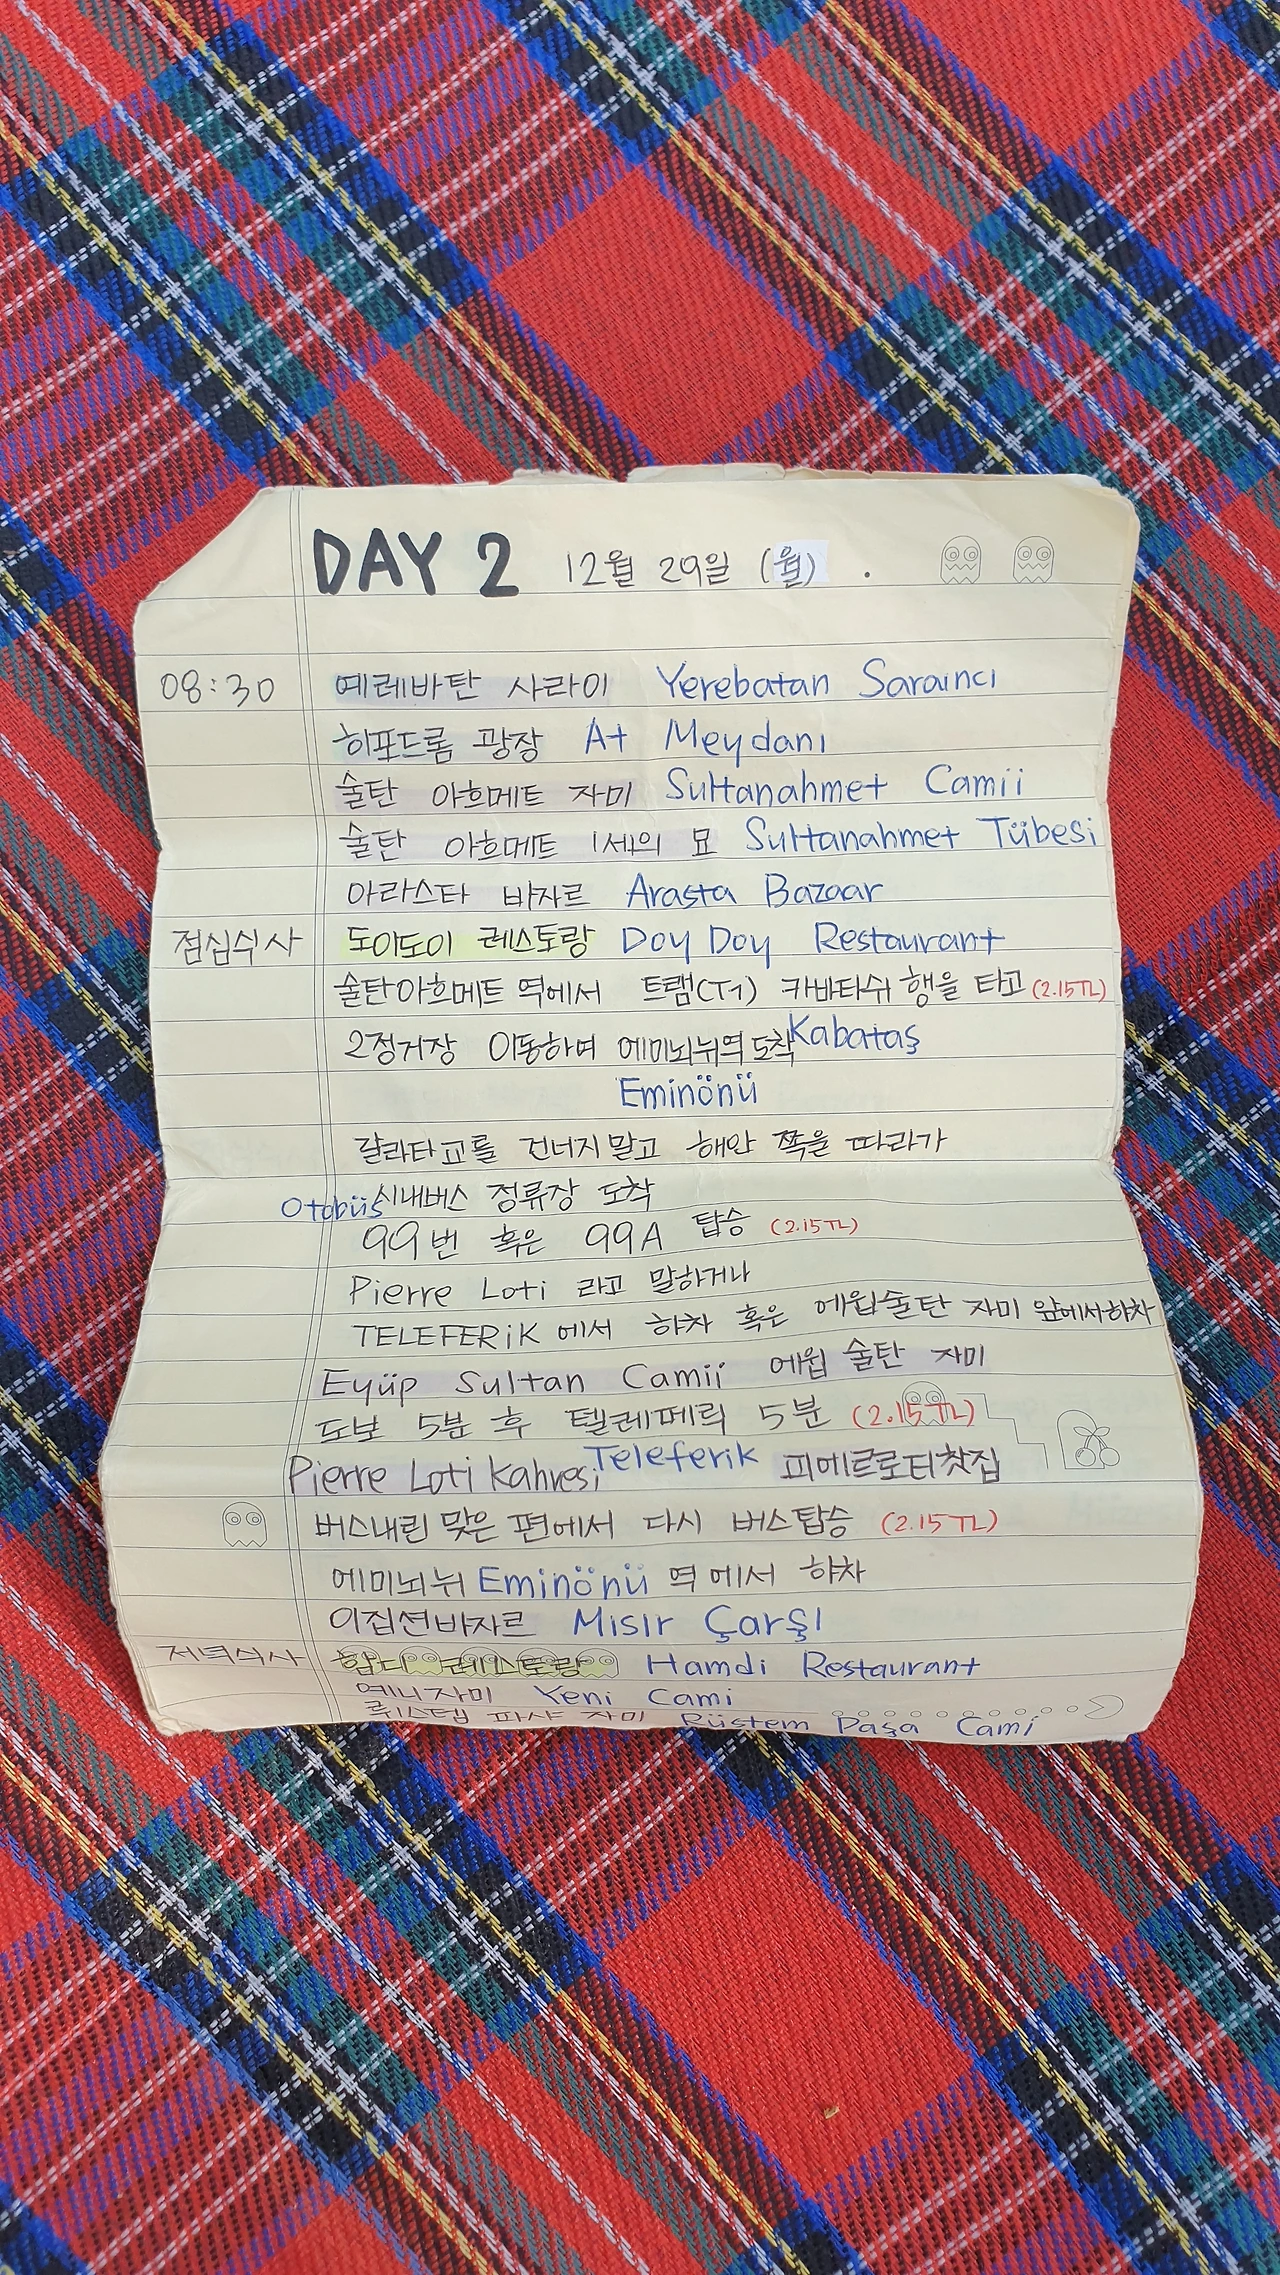 DAY 2 12월 29일 (월) .
08:30 예레바탄 사라이 Yerebatan Saraıncı
히포드롬 광장 At Meydanı
술탄 아흐메트 자미 Sultanahmet Camii
술탄 아흐메트 1세의 묘 Sultanahmet Tübesi
아라스타 바자르 Arasta Bazaar
점심식사 도이도이 레스토랑 Doy Doy Restaurant
술탄아흐메트 역에서 트램(T1) 카바타쉬 행을 타고 (2.15TL)
2정거장 이동하여 에미뇌뉘역 도착 Kabataş
Eminönü
갈라타교를 건너지 말고 해안 쪽을 따라가
Otobüs 시내버스 정류장 도착
99번 혹은 99A 탑승 (2.15TL)
Pierre Loti 라고 말하거나
TELEFERiK 에서 하차 혹은 에윕술탄 자미 앞에서하차
Eyüp Sultan Camii 에윕 술탄 자미
도보 5분 후 텔레페릭 5분 (2.15TL)
Pierre Loti Kahvesi Teleferik 피에르로티찻집
버스내린 맞은 편에서 다시 버스탑승 (2.15TL)
에미뇌뉘 Eminönü 역에서 하차
이집션바자르 Mısır Çarşı
저녁식사 함디 레스토랑 Hamdi Restaurant
예니자미 Yeni Cami
뤼스템 파샤 자미 Rüstem Paşa Cami